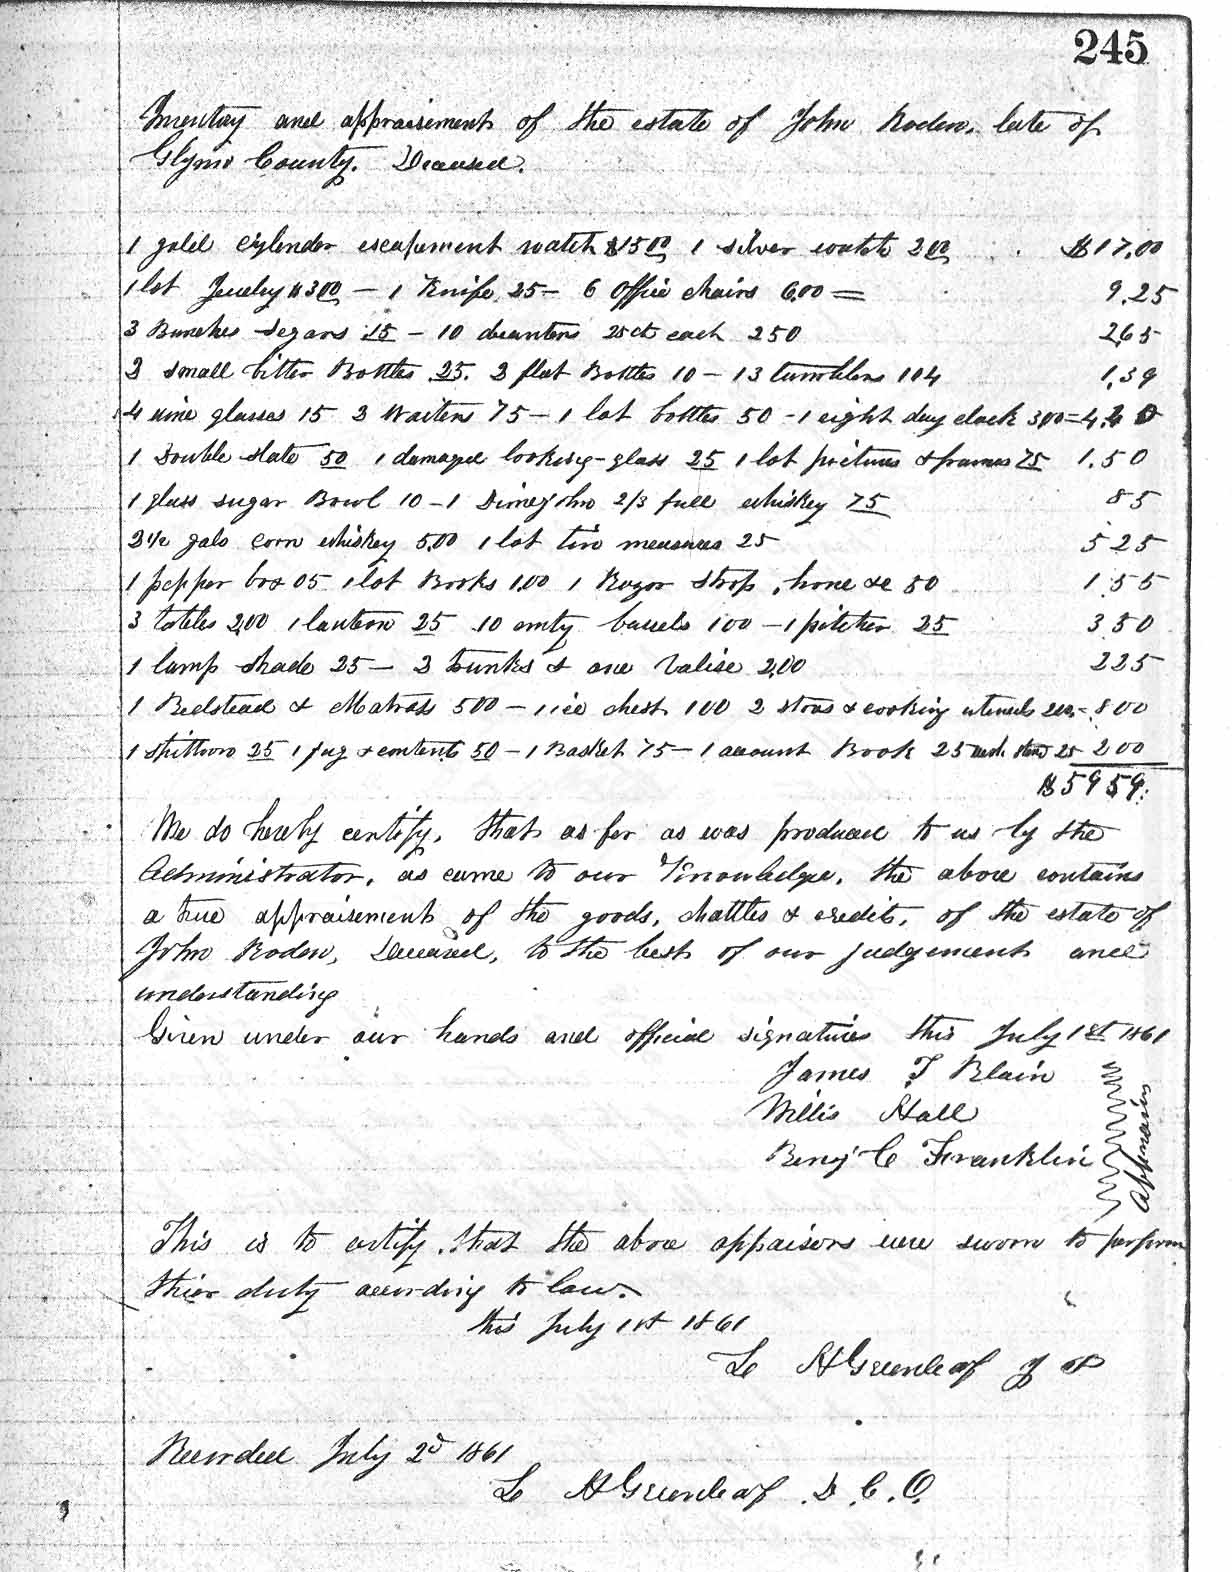 245
Inventory and appraisement of the estate of John Roden, late of
Glynn County. Deceased.
1 gold cylender escapement watch $15.00 1 silver watch 2.00 $17.00
1 lot Jewelry $3.00 — 1 Knife 25 — 6 Office chairs 6.00 = 9.25
3 Bunches segars 15 — 10 decanters 25cts each 250 2.65
3 small bitter Bottles 25. 3 flat Bottles 10 — 13 tumblers 104 1.39
4 wine glasses 15 3 Waiters 75 — 1 lot bottles 50 - 1 eight day clock 3.00 = 4.40
1 Double slate 50 1 damaged looking-glass 25 1 lot pictures & frames 75 1.50
1 glass sugar Bowl 10 - 1 Dimejohn 2/3 full whiskey 75 85
3 1/2 gals corn whiskey 5.00 1 lot tin measures 25 5 25
1 pepper box 05 1 lot Books 1.00 1 Razor Strop, hone &c 50 1.55
3 tables 2.00 1 lantern 25 10 emty barrels 100 — 1 pitcher 25 3 50
1 lamp shade 25 — 3 trunks & one Valise 2.00 2 25
1 Bedstead & Matrass 500 — 1 ice chest 100 2 stovs & cooking utensils 200 - 8 00
1 spittoon 25 1 jug & contents 50 — 1 Basket 75 — 1 account Book 25 wash stand 25 2 00
$59 59
We do hereby certify, that as far as was produced to us by the
Administrator, as came to our Knowledge, the above contains
a true appraisement of the goods, chattles & credits, of the estate of
John Roden, Deceased, to the best of our judgement and
understanding
Given under our hands and official signatures this July 1st 1861
James T Blain
Willis Hall
Benj C Franklin
appraisers
This is to certify, that the above appraisers were sworn to perform
thier duty according to law.
this July 1st 1861
L H Greenleaf J P
Recorded July 2d 1861
L H Greenleaf D. C. O.